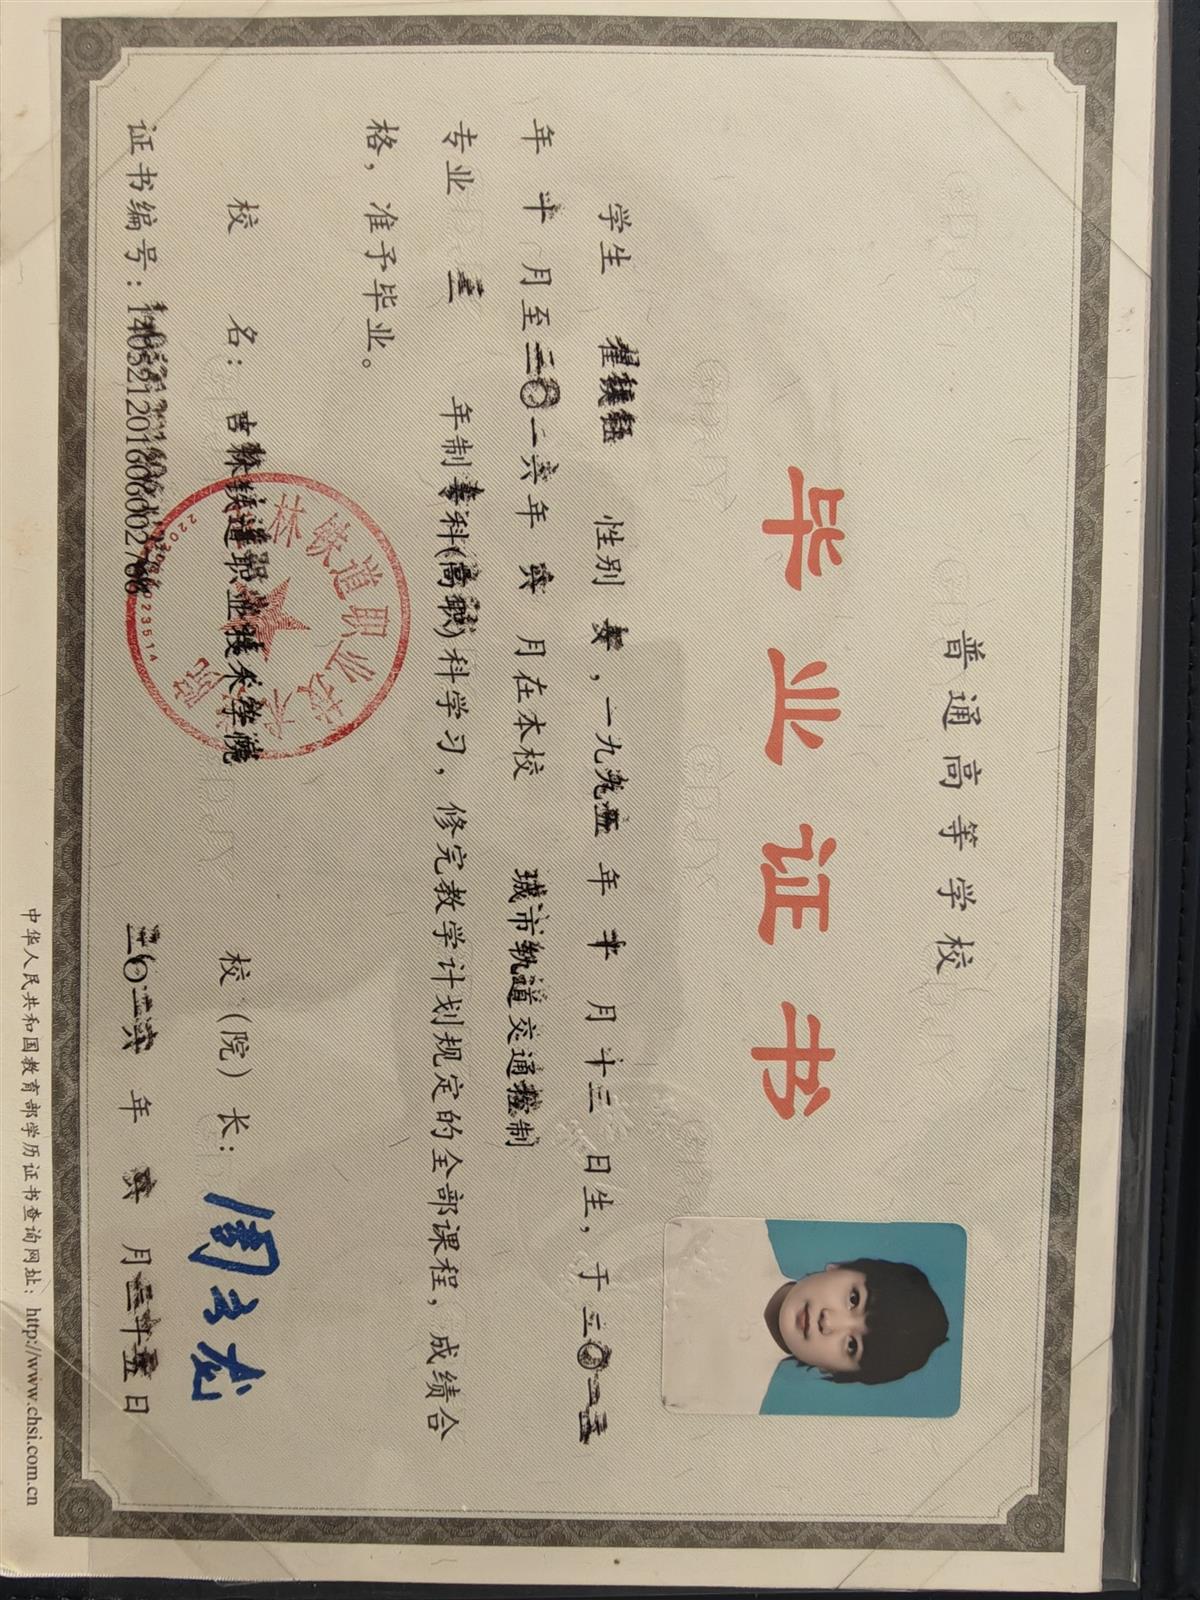 普通高等学校
毕业证书
学生 性别 女，一九九五年十月十三日生，于二〇一三
年 月至二〇一六年 月在本校 城市轨道交通控制
专业 三 年制专科(高职)科学习，修完教学计划规定的全部课程，成绩合
格，准予毕业。
校 名：吉林铁道职业技术学院 校（院）长：
证书编号：140521201606002766 二〇一六年 月 日
林铁道职业技术学院
中华人民共和国教育部学历证书查询网址：http://www.chsi.com.cn